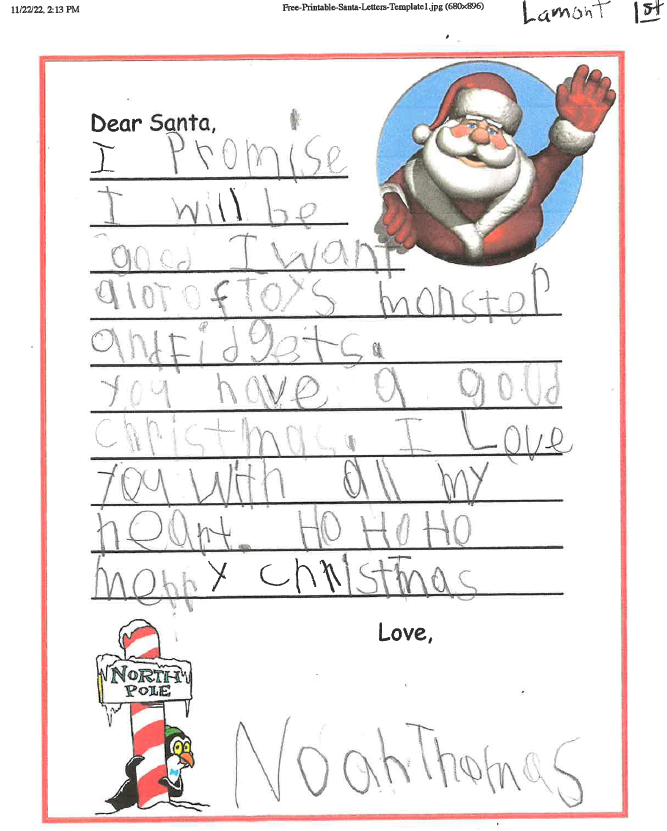 11/22/22, 2:13 PM
Free-Printable-Santa-Letters-Template1.jpg (680×896)
Lamont 1st
Dear Santa,
I Promise
I will be
good I want
alot of toys monster
and Fidgets.
you have a good
christmas. I Love
you with all my
heart. HO HO HO
merry christmas
Love,
NORTH
POLE
Noah Thomas